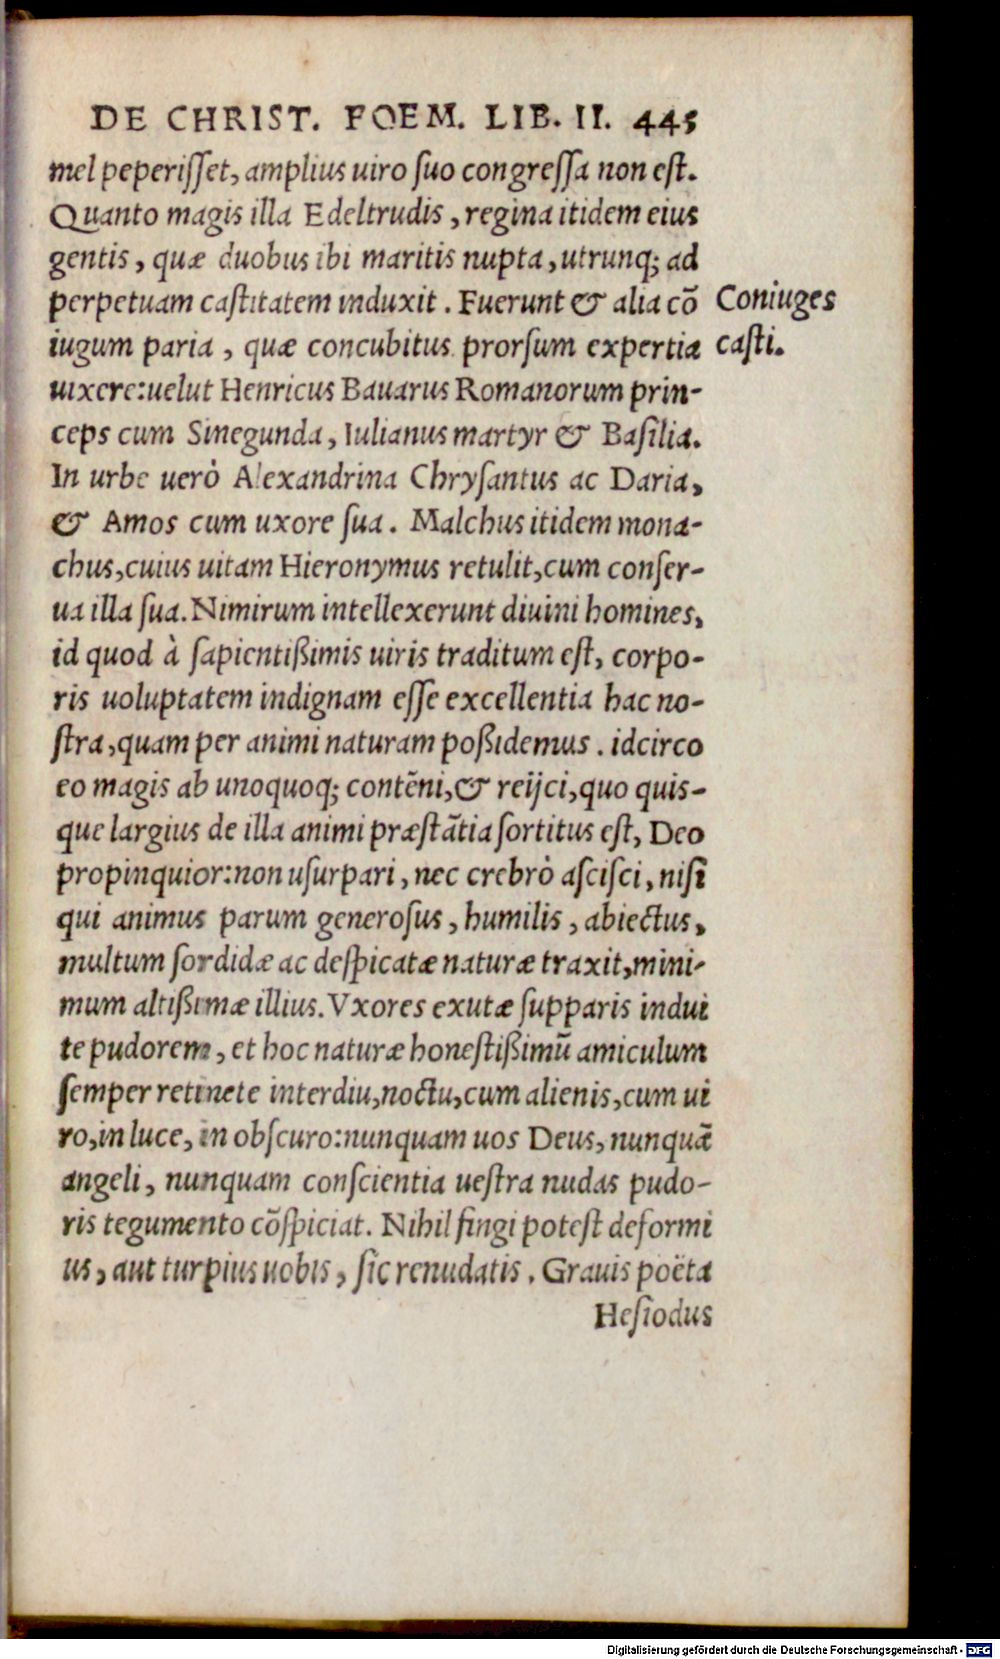 DE CHRIST. FOEM. LIB. II. 445
mel peperiſſet, amplius uiro ſuo congreſſa non eſt.
Quanto magis illa Edeltrudis, regina itidem eius
gentis, quæ duobus ibi maritis nupta, utrunq; ad
perpetuam caſtitatem induxit. Fuerunt & alia cō
iugum paria, quæ concubitus prorſum expertia
uixere: uelut Henricus Bauarus Romanorum prin-
ceps cum Sinegunda, Iulianus martyr & Baſilia.
In urbe uerò Alexandrina Chryſantus ac Daria,
& Amos cum uxore ſua. Malchus itidem mona-
chus, cuius uitam Hieronymus retulit, cum conſer-
ua illa ſua. Nimirum intellexerunt diuini homines,
id quod à ſapientißimis uiris traditum eſt, corpo-
ris uoluptatem indignam eſſe excellentia hac no-
ſtra, quam per animi naturam poßidemus. idcirco
eo magis ab unoquoq; contēni, & reijci, quo quis-
que largius de illa animi præſtātia ſortitus eſt, Deo
propinquior: non uſurpari, nec crebrò aſciſci, niſi
qui animus parum generoſus, humilis, abiectus,
multum ſordidæ ac deſpicatæ naturæ traxit, mini-
mum altißimæ illius. Vxores exutæ ſupparis indui
te pudorem, et hoc naturæ honeſtißimū amiculum
ſemper retinete interdiu, noctu, cum alienis, cum ui
ro, in luce, in obſcuro: nunquam uos Deus, nunquā
angeli, nunquam conſcientia ueſtra nudas pudo-
ris tegumento cōſpiciat. Nihil fingi poteſt deformi
us, aut turpius uobis, ſic renudatis. Grauis poëta
Heſiodus
Coniuges
caſti.
Digitalisierung gefördert durch die Deutsche Forschungsgemeinschaft - DFG